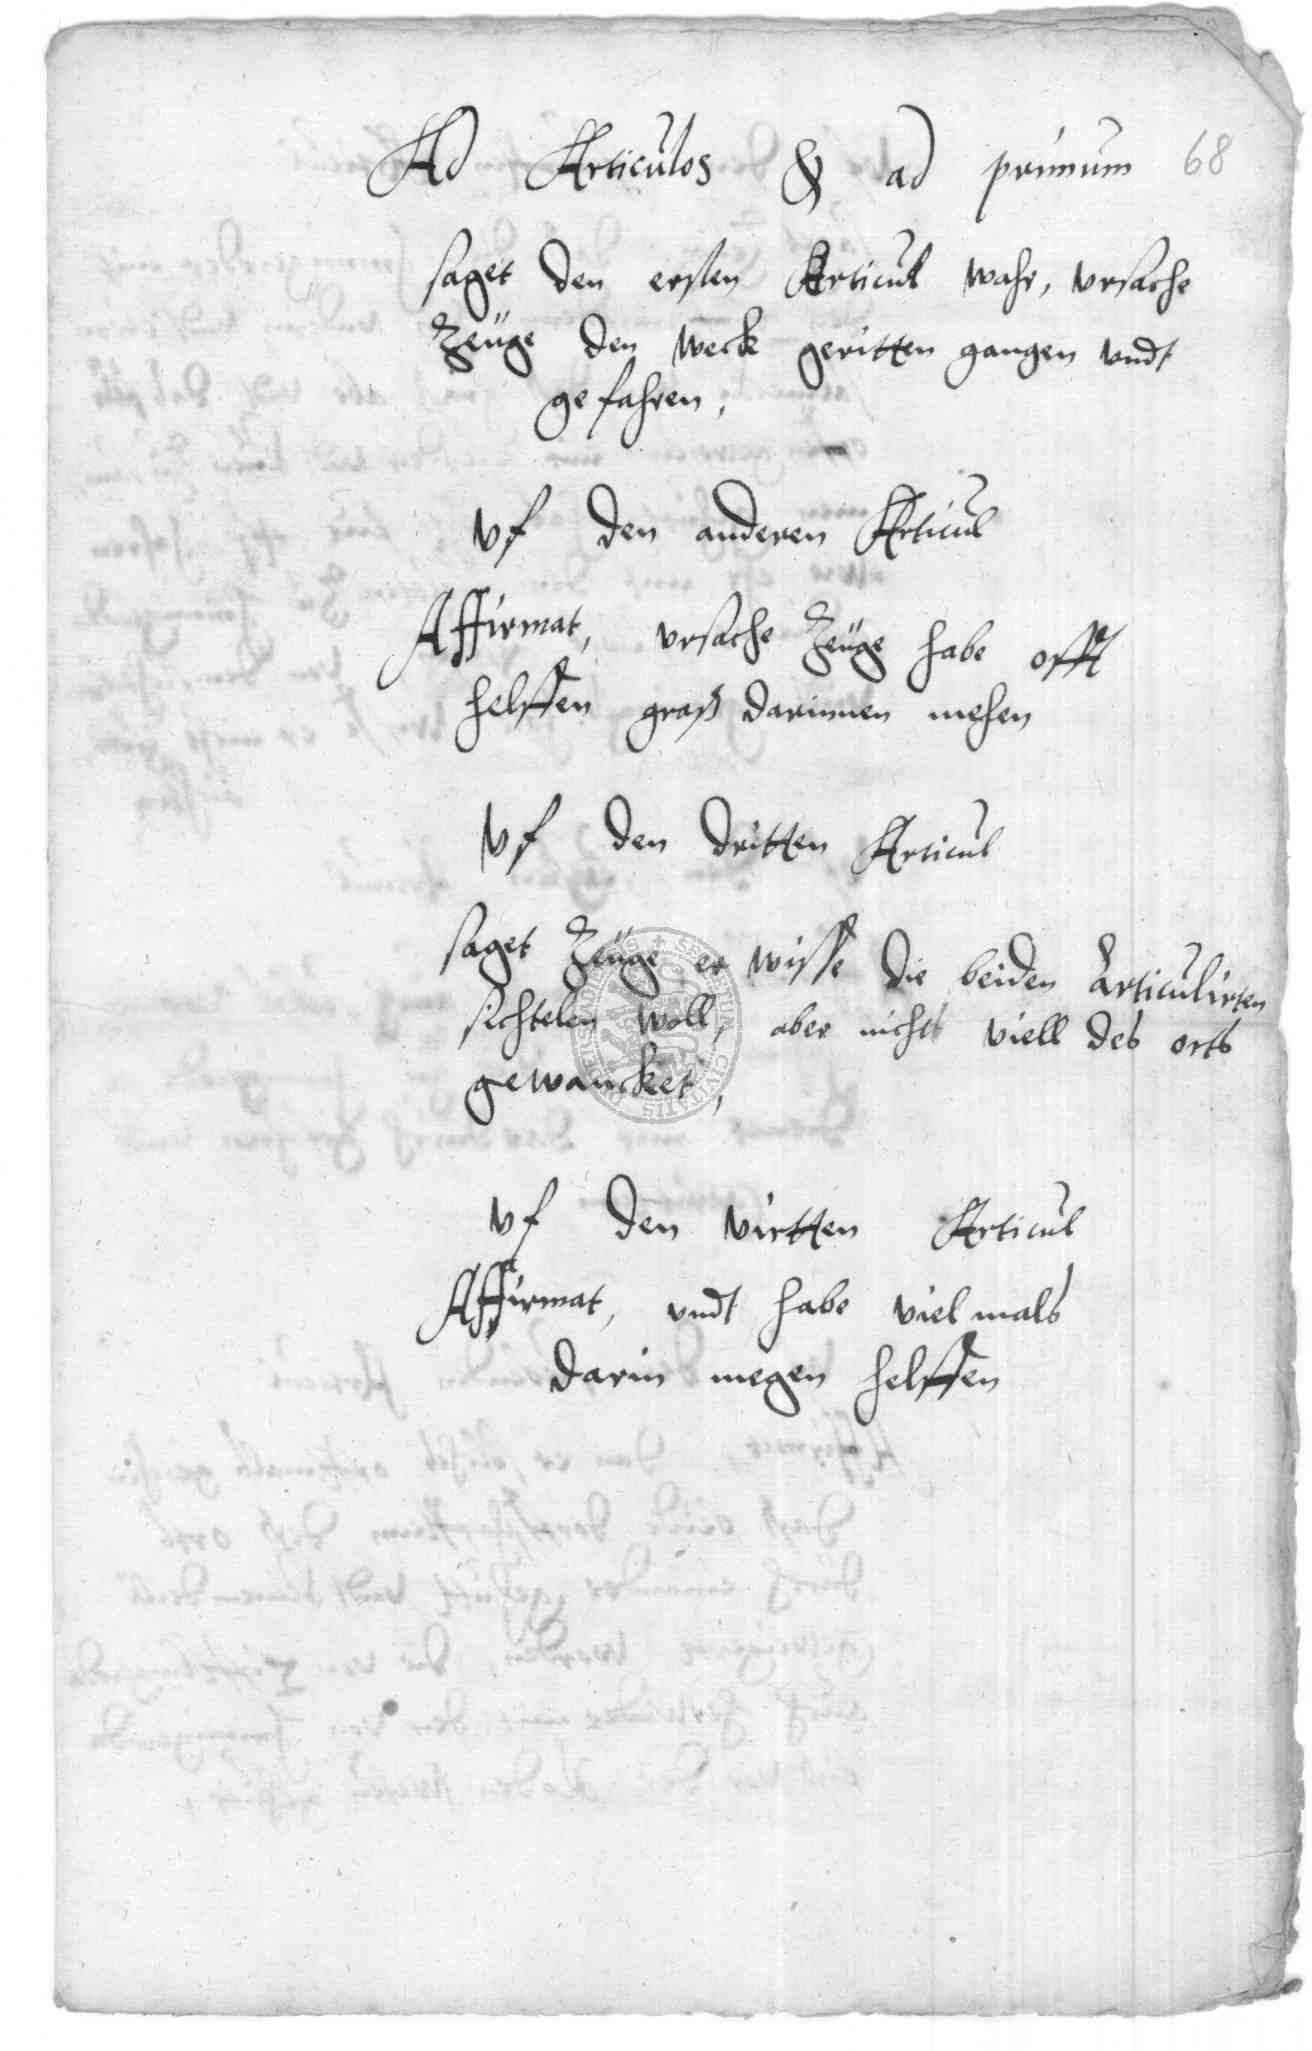 Ad Articulos & ad primum 68
saget den ersten Articul wahr, vrsache
Zeüge den weck geritten gangen vndt
gefahren,
Vf den anderen Articul
Affirmat, vrsache Zeüge habe offt
helffen graß darinnen mehen
Vf den dritten Articul
saget Zeüge er wisse die beiden articulirten
sichtelen woll, aber nichts viell des orts
gewancket,
Vf den virtten Articul
Affirmat, vndt habe vielmals
darin megen helffen